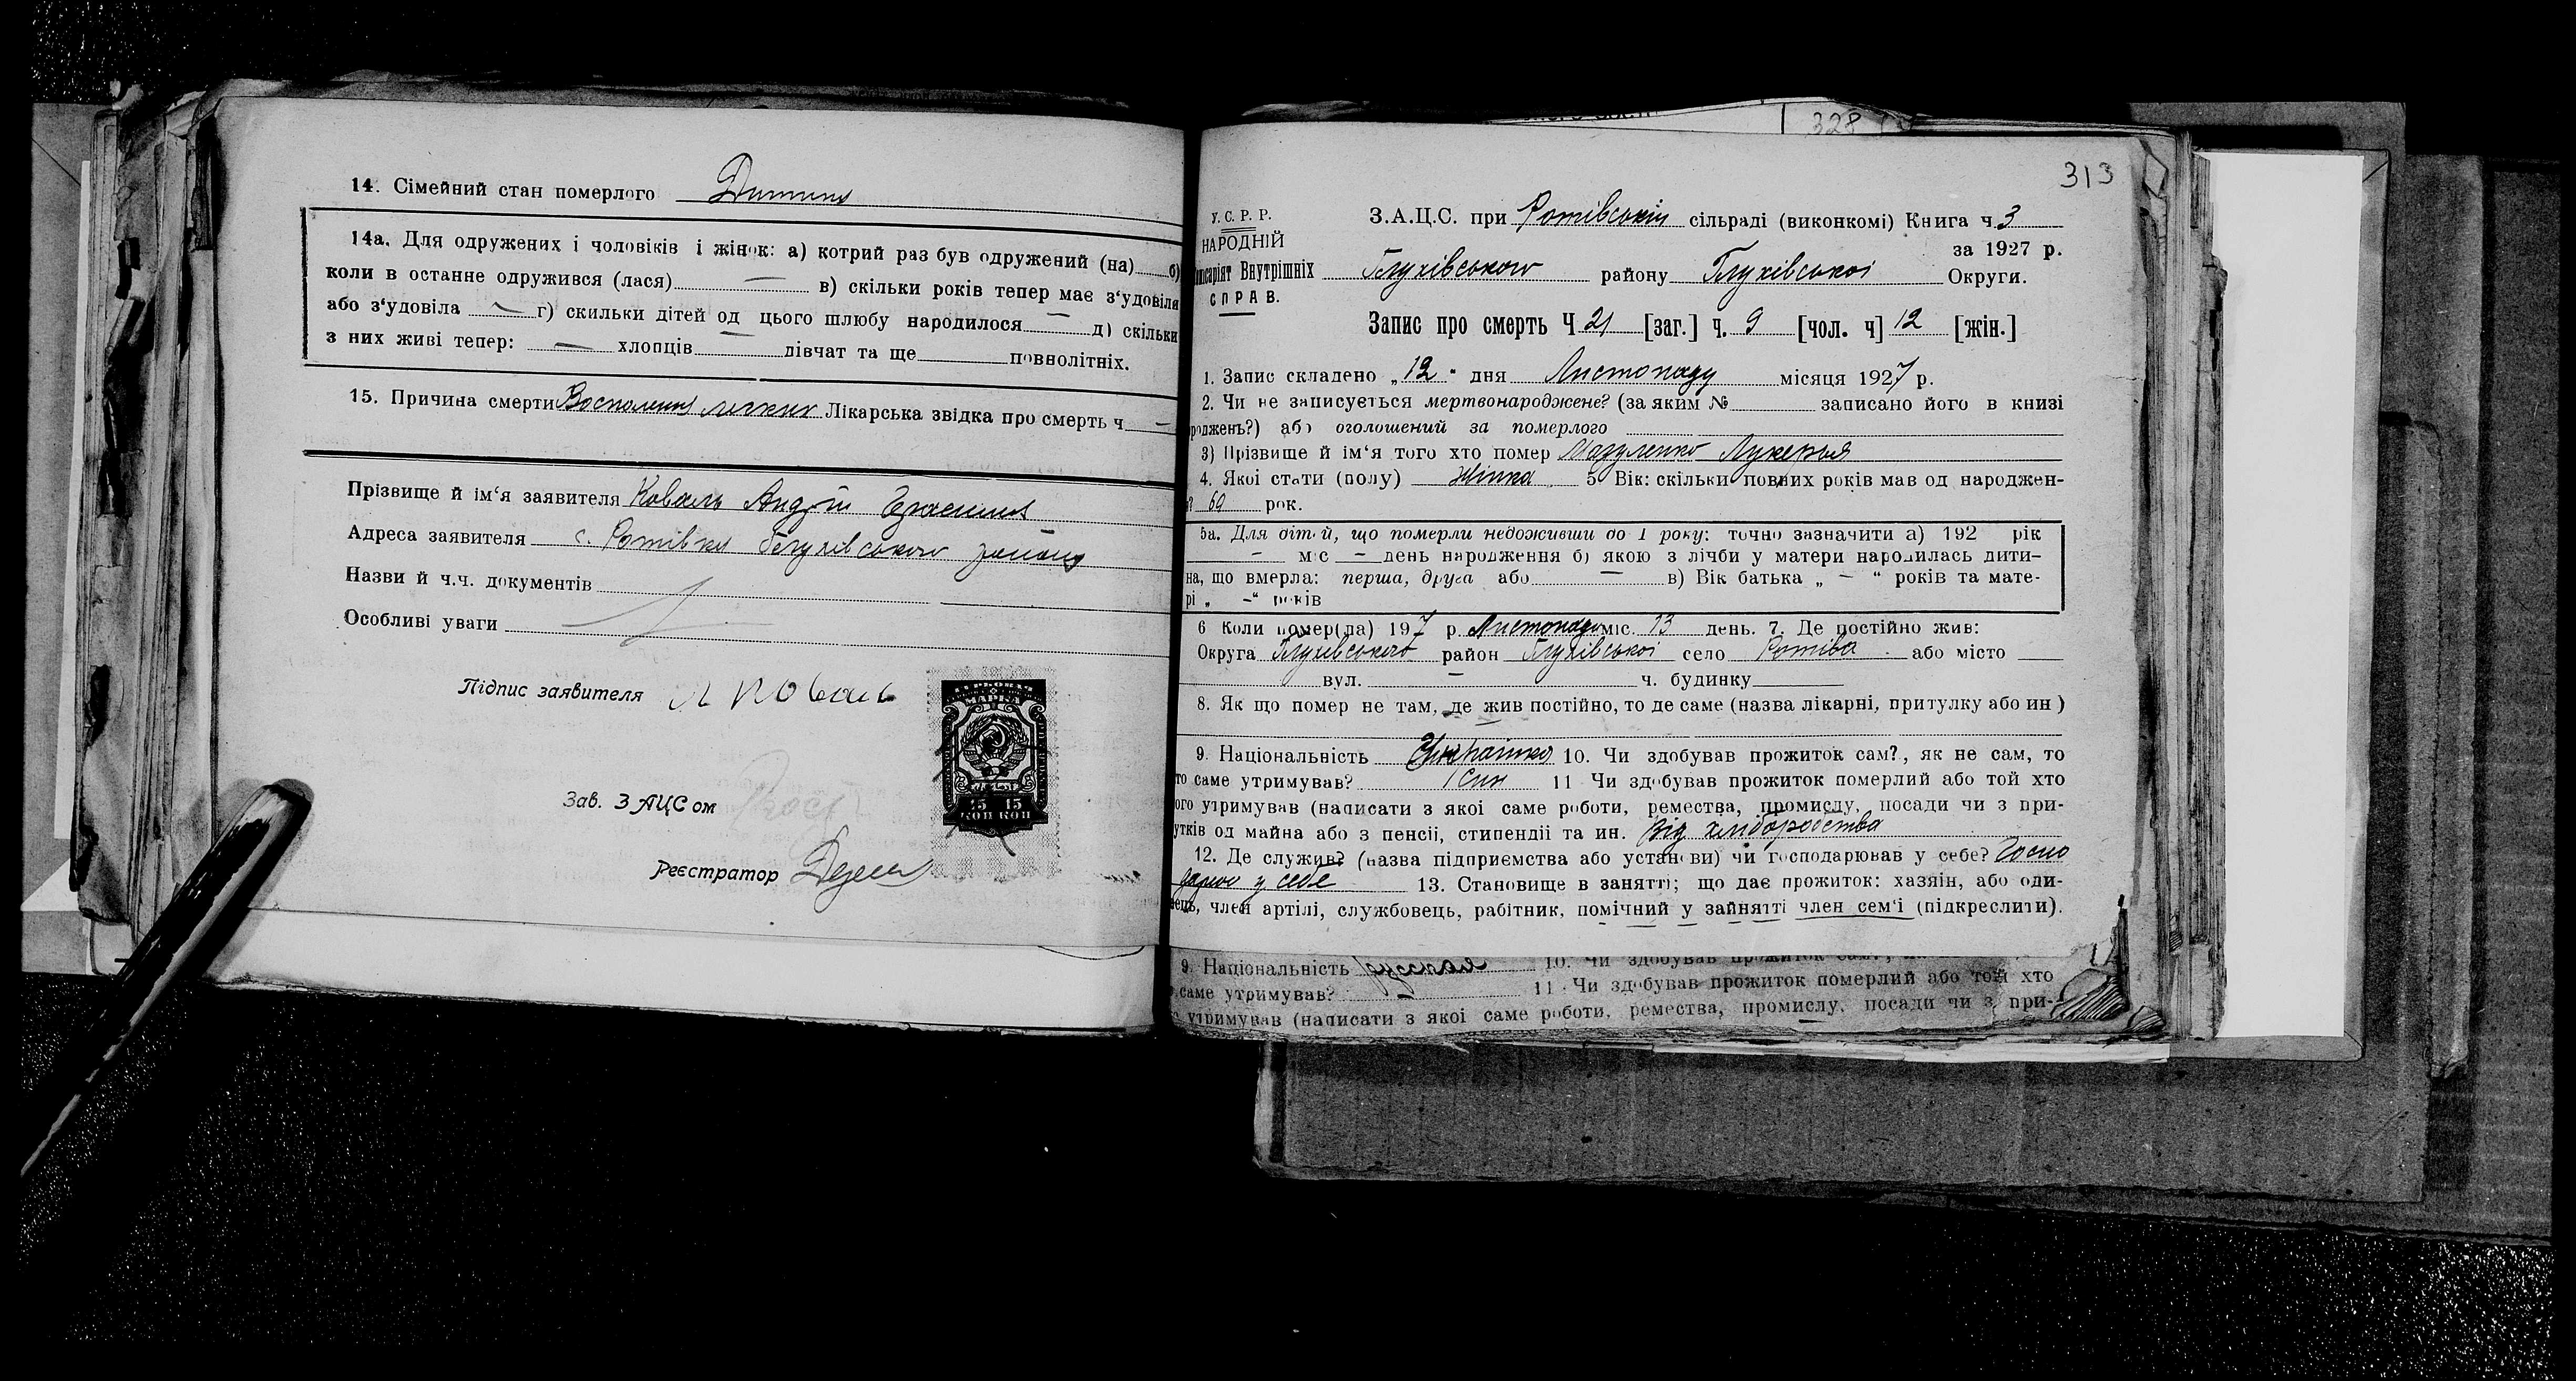 14. Сімейний стан померлого Дитина
14а. Для одружених і чоловіків і жінок: а) котрий раз був одружений (на) б)
коли в останне одружився (лася) — в) скільки років тепер має з'удовіли
або з'удовіла — г) скильки дітей од цього шлюбу народилося — д) скільки
з них живі тепер: — хлопців — дівчат та ще повнолітніх.
15. Причина смерти Лікарська звідка про смерть ч —
Прізвище й ім'я заявителя Коваль Андрій
Адреса заявителя с. Глухівського району
Назви й ч.ч. документів
Особливі уваги
Підпис заявителя А Коваль
Зав. ЗАЦСом
МАРКА
15 15
КОП КОП
Реєстратор
328
313
У.С.Р.Р.
НАРОДНІЙ
Внутрішніх
СПРАВ.
З.А.Ц.С. при сільраді (виконкомі) Книга ч. 3
за 1927 р.
Глухівського району Глухівської Округи.
Запис про смерть Ч 21 [заг.] ч. 9 [чол. ч] 12 [жін.]
1. Запис складено „12" дня Листопаду місяця 1927 р.
2. Чи не записується мертвонароджене? (за яким № записано його в книзі
роджень?) або оголошений за померлого
3) Прізвище й ім'я того хто помер Лукерья
4. Якоі стати (полу) Жінка 5 Вік: скільки повних років мав од народжен-
69 рок.
5а. Для дітей, що померли недоживши до 1 року: точно зазначити а) 192 рік
— міс — день народження б) якою з лічби у матери народилась дити-
на, що вмерла: перша, друга або — в) Вік батька „ — " років та мате-
рі „ — " років
6 Коли помер(ла) 197 р. Листопада міс. 13 день. 7. Де постійно жив:
Округа Глухівського район Глухівської село або місто
вул. — ч. будинку
8. Як що помер не там, де жив постійно, то де саме (назва лікарні, притулку або ин)
9. Національність 10. Чи здобував прожиток сам?, як не сам, то
то саме утримував? Син 11 Чи здобував прожиток померлий або той хто
ого утримував (написати з якоі саме роботи, ремества, промислу, посади чи з при-
утків од майна або з пенсіі, стипендіі та ин. Від хліборобства
12. Де служив? (назва підприємства або установи) чи господарював у себе? Госпо
дарює у себе 13. Становище в занятті; що дає прожиток: хазяін, або оди-
нець, член артілі, службовець, рабітник, помічний у зайнятті член сем'і (підкреслити).
9. Національність 10. Чи здобував прожиток сам?,
саме утримував? 11 Чи здобував прожиток померлий або той хто
утримував (написати з якоі саме роботи, ремества, промислу, посади чи з при-